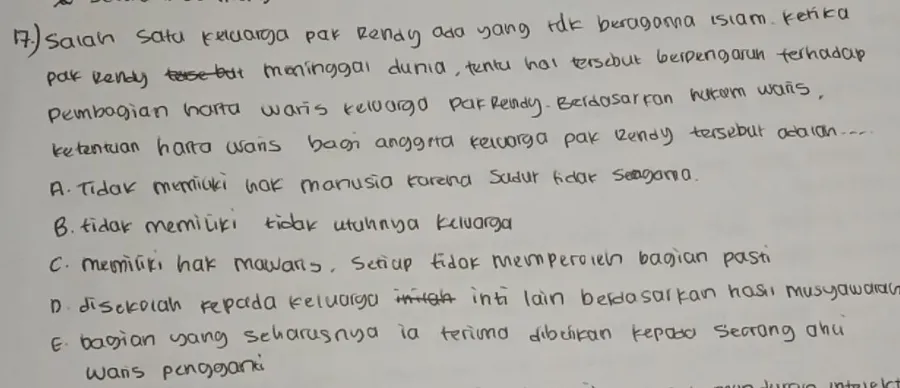 17.) Salah satu keluarga pak Rendy ada yang tdk beragama islam. ketika
pak Rendy tersebut meninggal dunia, tentu hal tersebut berpengaruh terhadap
pembagian harta waris keluarga pak Rendy. Berdasarkan hukum waris,
ketentuan harta waris bagi anggota keluarga pak Rendy tersebut adalah....
A. Tidak memiliki hak manusia karena sudut tidak seagama.
B. tidak memiliki tidak utuhnya keluarga
C. memiliki hak mawaris, setiap tidak memperoleh bagian pasti
D. disekolah kepada keluarga inti lain berdasarkan hasil musyawarah
E. bagian yang seharusnya ia terima diberikan kepada seorang ahli
waris pengganti